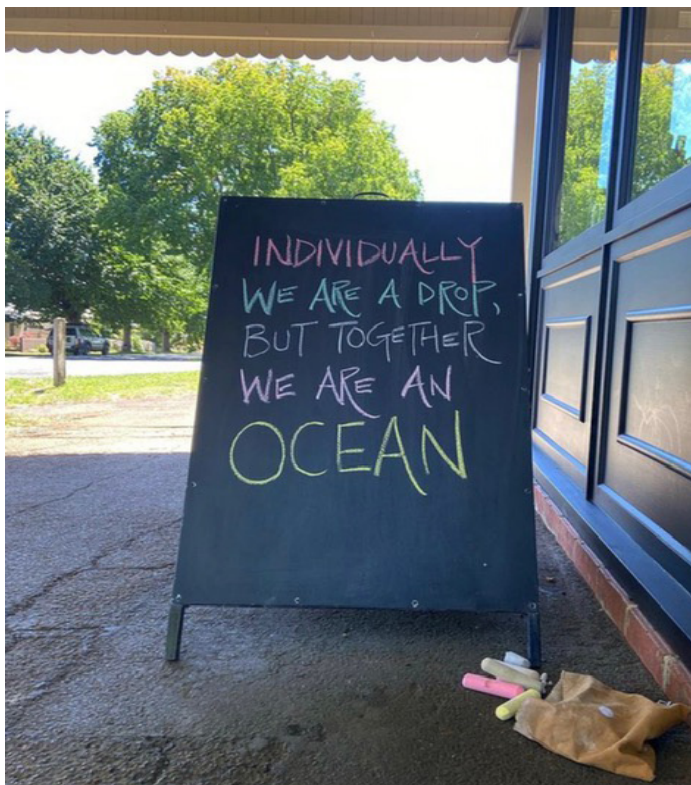 INDIVIDUALLY
WE ARE A DROP,
BUT TOGETHER
WE ARE AN
OCEAN